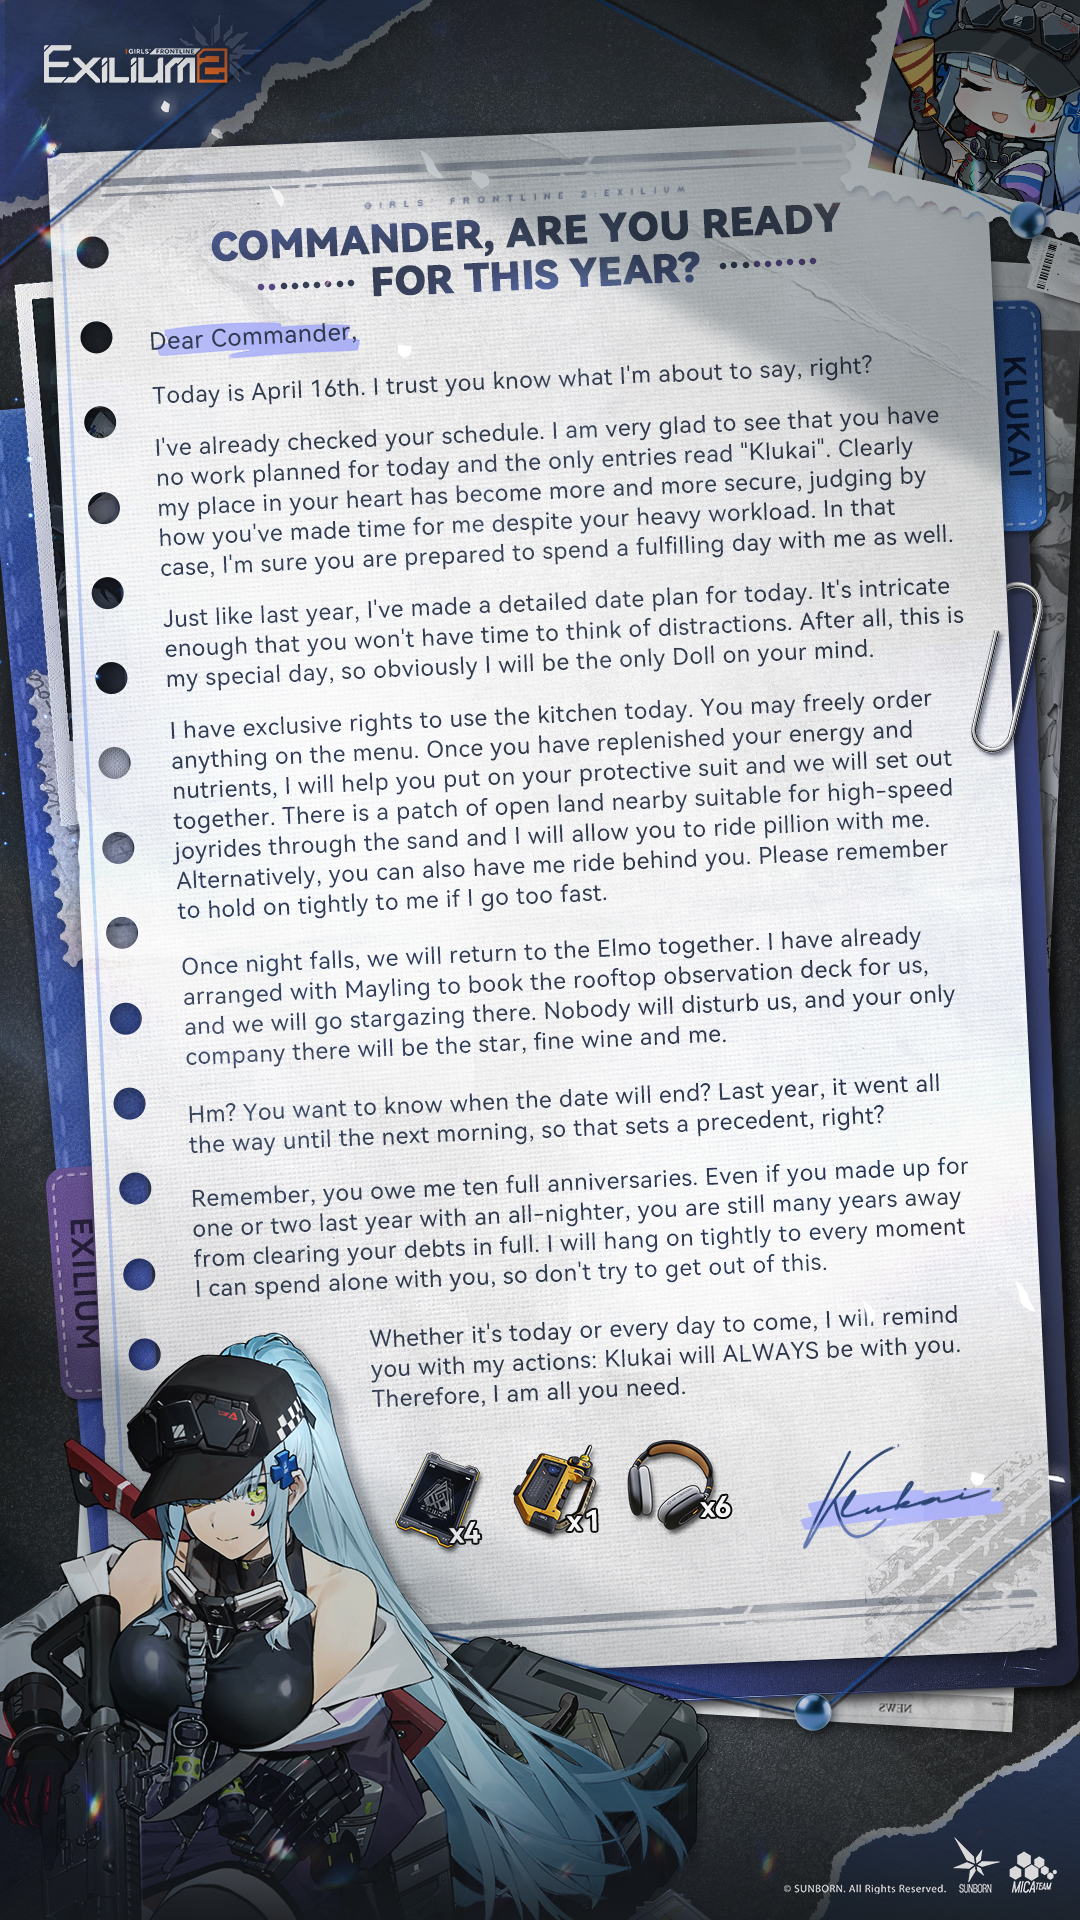 GIRLS' FRONTLINE
EXILIUM2
GIRLS' FRONTLINE 2:EXILIUM
COMMANDER, ARE YOU READY
FOR THIS YEAR?
Dear Commander,
Today is April 16th. I trust you know what I'm about to say, right?
I've already checked your schedule. I am very glad to see that you have
no work planned for today and the only entries read "Klukai". Clearly
my place in your heart has become more and more secure, judging by
how you've made time for me despite your heavy workload. In that
case, I'm sure you are prepared to spend a fulfilling day with me as well.
Just like last year, I've made a detailed date plan for today. It's intricate
enough that you won't have time to think of distractions. After all, this is
my special day, so obviously I will be the only Doll on your mind.
I have exclusive rights to use the kitchen today. You may freely order
anything on the menu. Once you have replenished your energy and
nutrients, I will help you put on your protective suit and we will set out
together. There is a patch of open land nearby suitable for high-speed
joyrides through the sand and I will allow you to ride pillion with me.
Alternatively, you can also have me ride behind you. Please remember
to hold on tightly to me if I go too fast.
Once night falls, we will return to the Elmo together. I have already
arranged with Mayling to book the rooftop observation deck for us,
and we will go stargazing there. Nobody will disturb us, and your only
company there will be the star, fine wine and me.
Hm? You want to know when the date will end? Last year, it went all
the way until the next morning, so that sets a precedent, right?
Remember, you owe me ten full anniversaries. Even if you made up for
one or two last year with an all-nighter, you are still many years away
from clearing your debts in full. I will hang on tightly to every moment
I can spend alone with you, so don't try to get out of this.
Whether it's today or every day to come, I will remind
you with my actions: Klukai will ALWAYS be with you.
Therefore, I am all you need.
x4
x1
x6
Klukai
KLUKAI
EXILIUM
NEWS
© SUNBORN. All Rights Reserved.
SUNBORN
MICATEAM